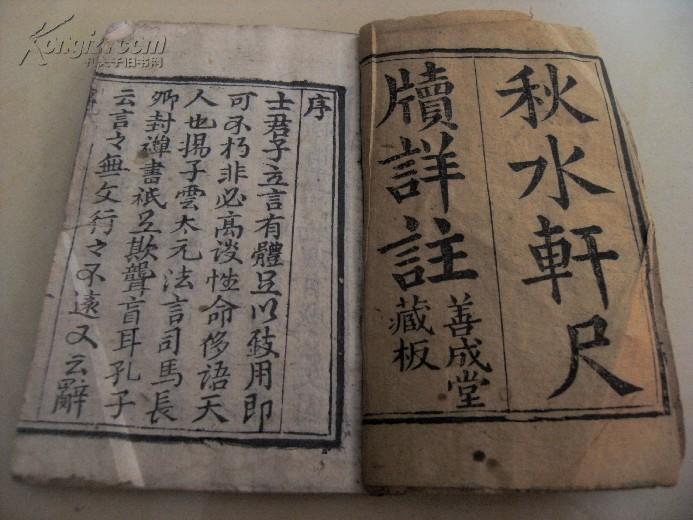 秋水軒尺
牘詳註
善成堂
藏板
序
士君子立言有體足以致用即
可不朽非必高談性命侈語天
人也揚子雲太元法言司馬長
卿封禪書祇足欺聾盲耳孔子
云言之無文行之不遠又云辭
Kongfz.com
孔夫子旧书网